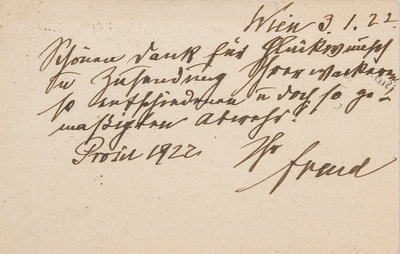 Wien 3.1.22
Schönen Dank für Glückwunsch
u Zusendung Ihrer wackeren
so entschiedenen u doch so ge-
mäßigten Abwehr!
Prosit 1922
Ihr
Freud